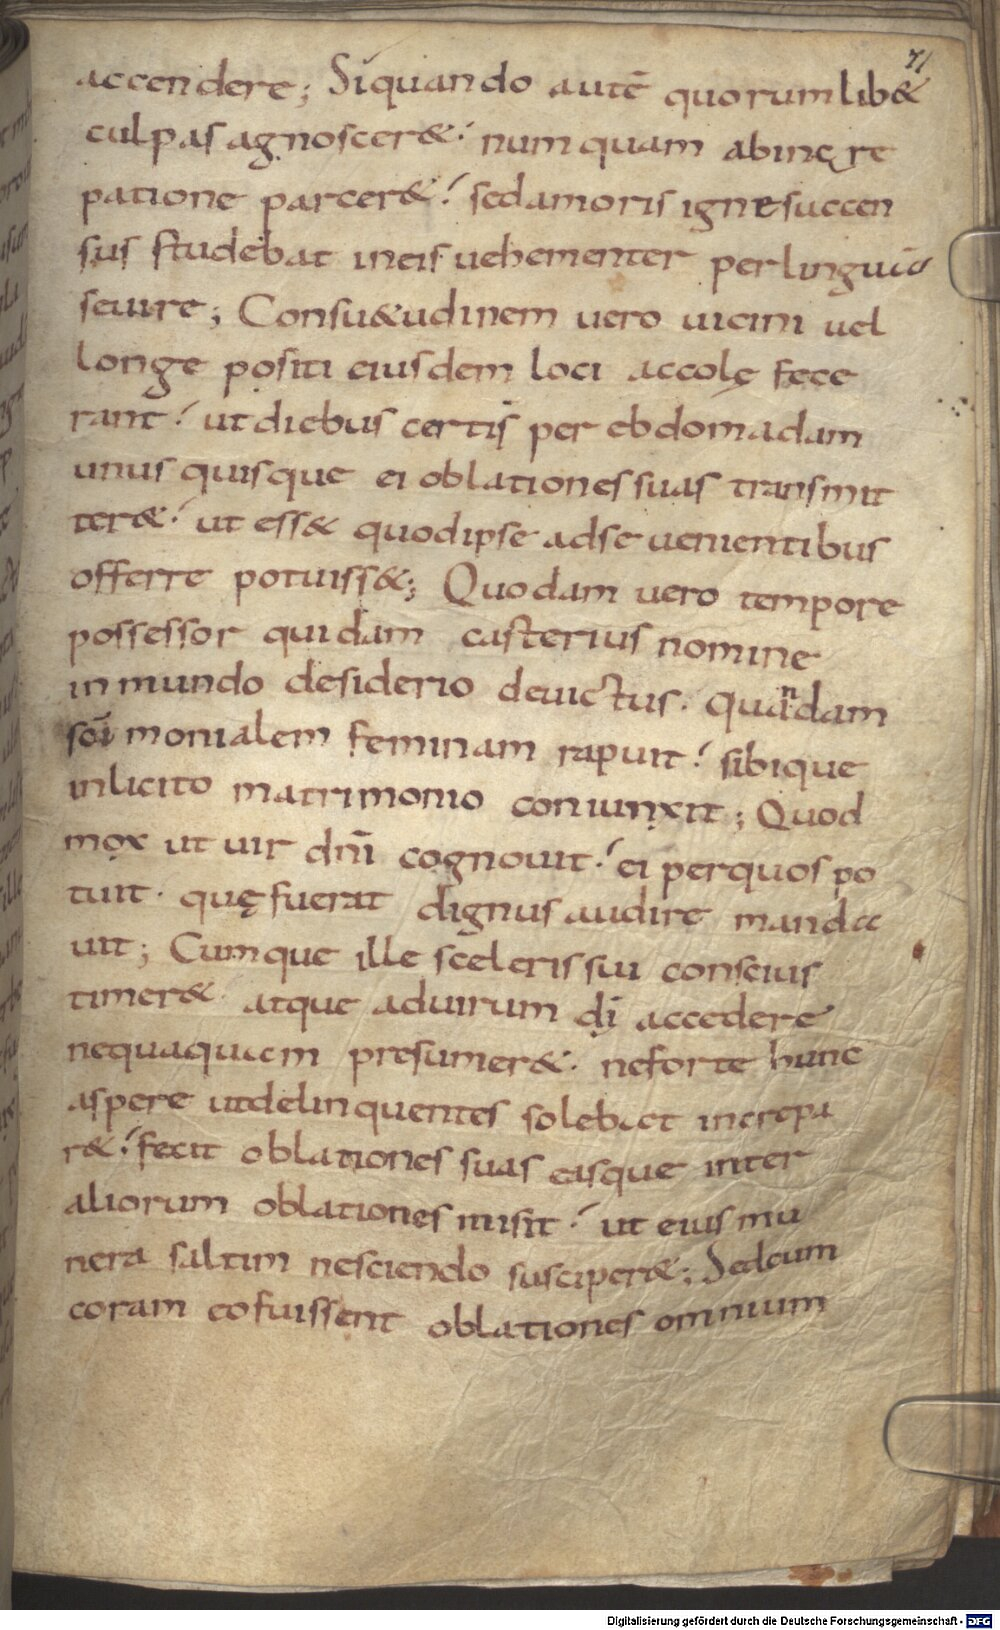 71
accendere; Si quando autē quorumlib&
culpas agnoscer&; numquam ab incre
patione parcer&; sed amoris igne succen
sus studebat in eis uehementer per linguā
seuire; Consu&udinem uero uicini uel
longe positi eiusdem loci accolę fece
rant; ut diebus certis per ebdomadam
unus quisque ei oblationes suas transmit
ter&; ut ess& quod ipse ad se uenientibus
offerre potuiss&; Quodam uero tempore
possessor quidam casterius nomine
in mundo desiderio deuictus. quandam
scīmonialem feminam rapuit; sibique
inlicito matrimonio coniunxit; Quod
mox ut uir dn̄i cognouit; ei per quos po
tuit. quę fuerat dignus audire manda
uit; Cumque ille sceleris sui conscius
timer& atque ad uirum dī accedere
nequaquam presumer&. ne forte hunc
aspere ut delinquentes solebat increpa
r&; fecit oblationes suas easque inter
aliorum oblationes misit; ut eius mu
nera saltim nesciendo susciper&; Sed cum
coram eo fuissent oblationes omnium
Digitalisierung gefördert durch die Deutsche Forschungsgemeinschaft - DFG